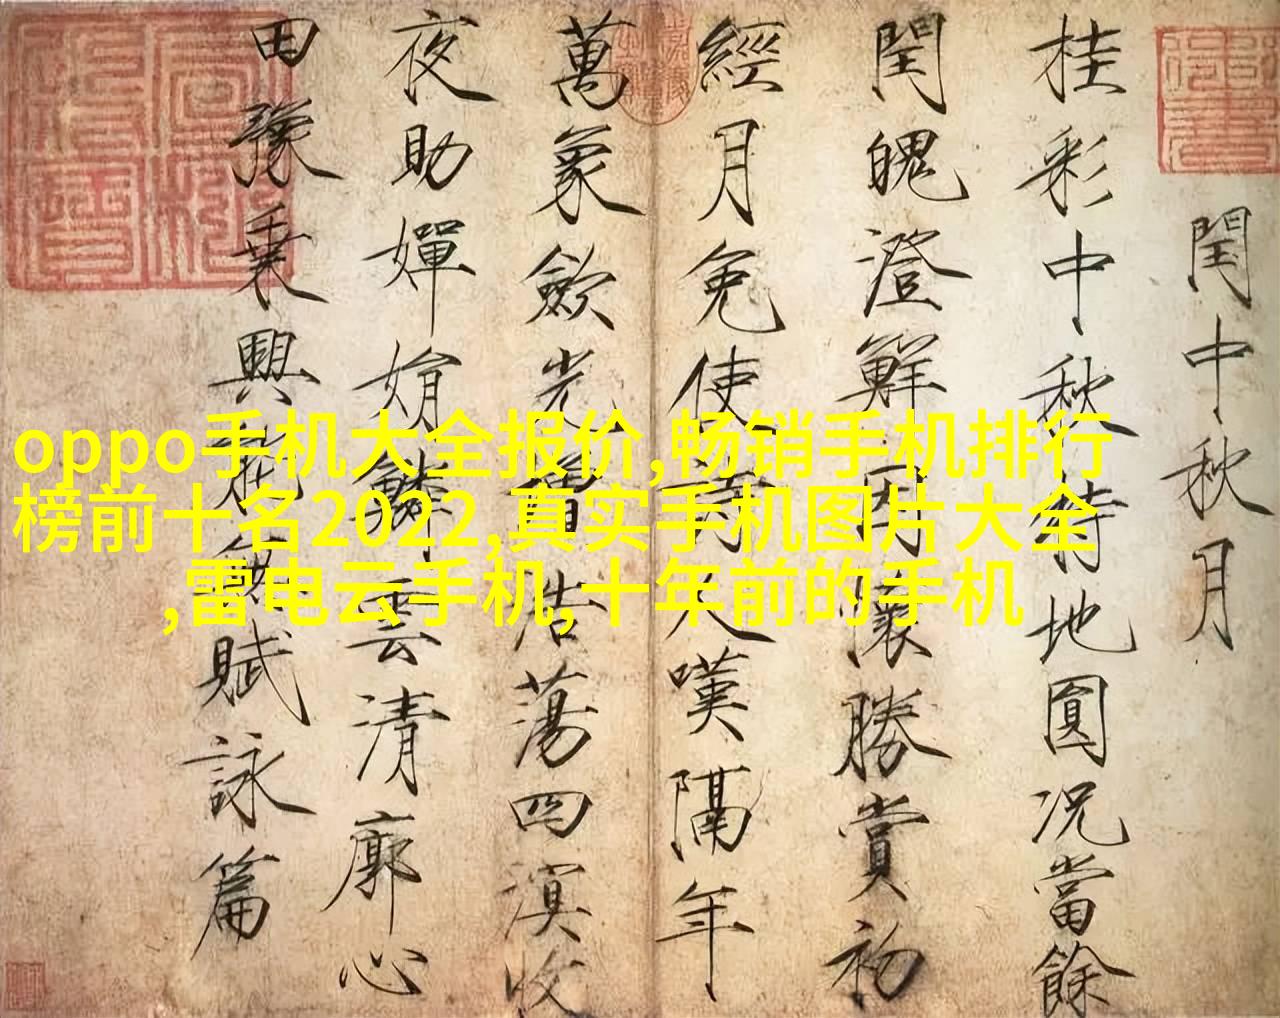 閏中秋月
桂彩中秋特地圓況當餘
閏魄澄鮮因懷勝賞初
經月免使詩人嘆隔年
萬象歛光增浩蕩四溟收
夜助嬋娟鱗雲清廓心
田豫乗興能無賦詠篇
oppo手机大全报价,畅销手机排行
榜前十名2022,真实手机图片大全
,雷电云手机,十年前的手机